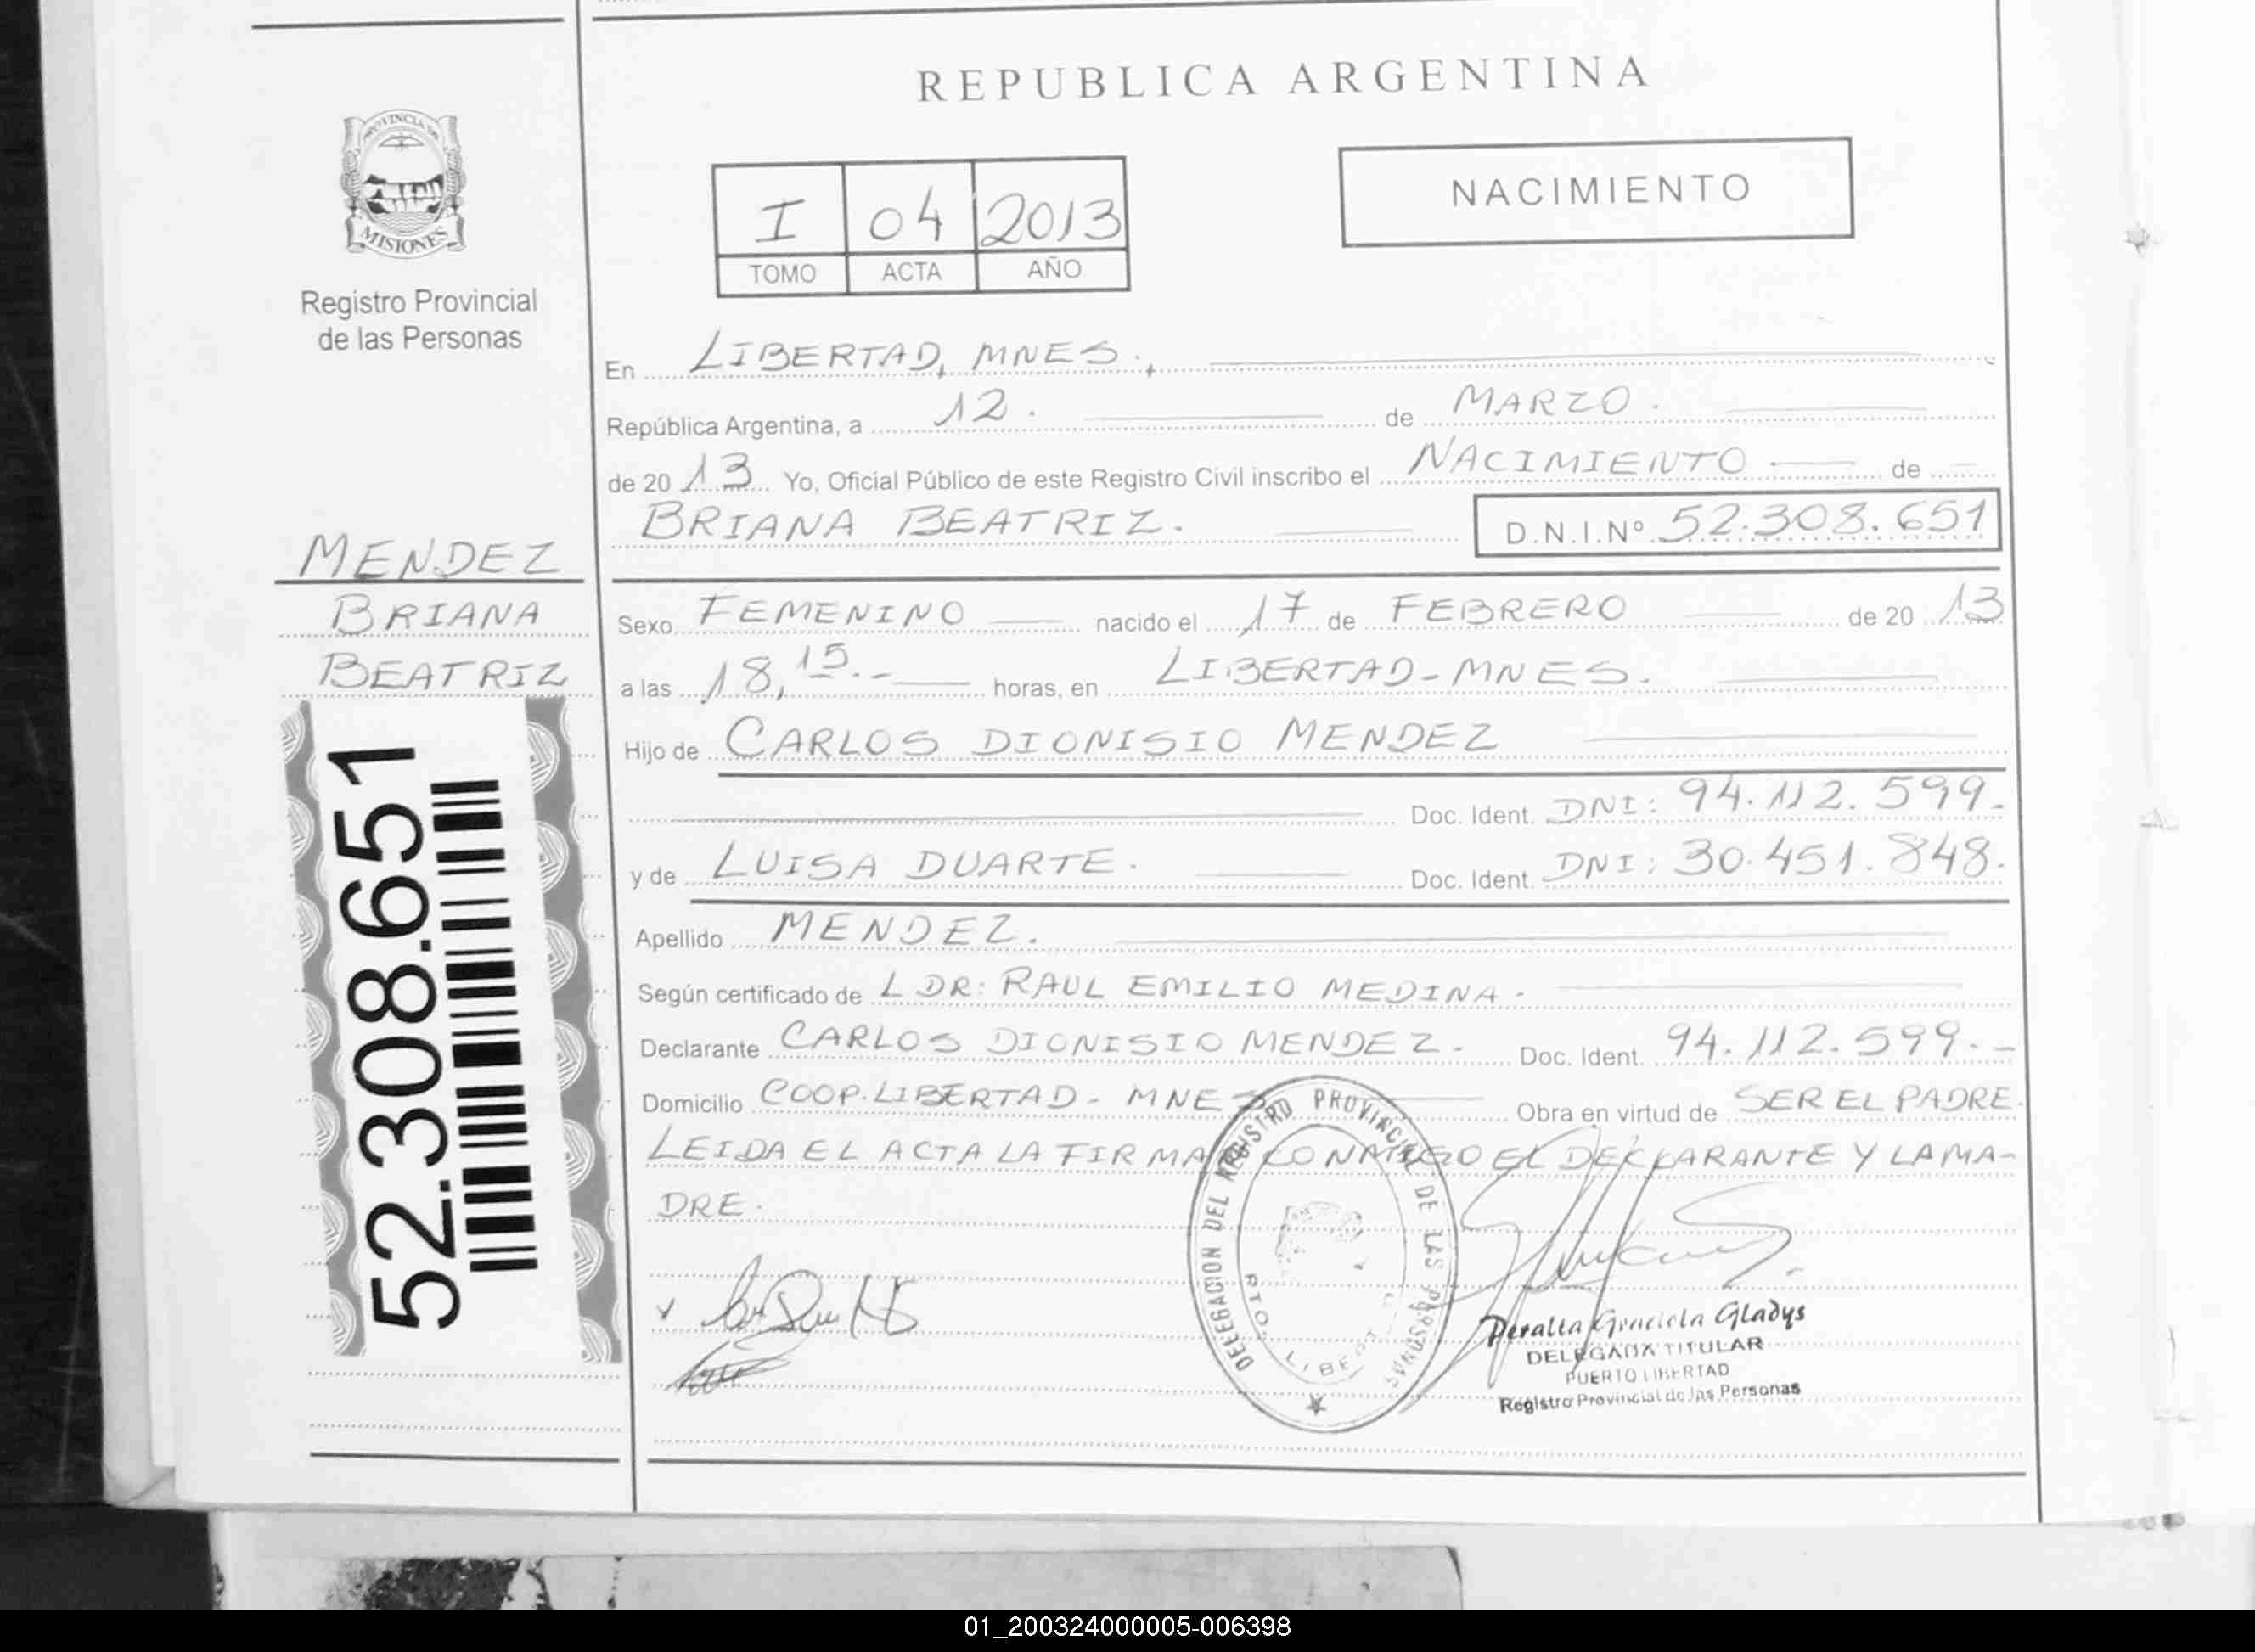 REPUBLICA ARGENTINA
PROVINCIA DE
MISIONES
Registro Provincial
de las Personas
NACIMIENTO
I 04 2013
TOMO ACTA AÑO
En LIBERTAD, MNES.,
República Argentina, a 12. de MARZO.
de 2013 Yo, Oficial Público de este Registro Civil inscribo el NACIMIENTO de
BRIANA BEATRIZ. D.N.I.Nº 52.308.651
MENDEZ
BRIANA
BEATRIZ
52.308.651
Sexo FEMENINO nacido el 17 de FEBRERO de 2013
a las 18,15.- horas, en LIBERTAD-MNES.
Hijo de CARLOS DIONISIO MENDEZ
Doc. Ident. DNI: 94.112.599.
y de LUISA DUARTE. Doc. Ident. DNI: 30.451.848.
Apellido MENDEZ.
Según certificado de L DR: RAUL EMILIO MEDINA.
Declarante CARLOS DIONISIO MENDEZ. Doc. Ident. 94.112.599.-
Domicilio COOP. LIBERTAD - MNES Obra en virtud de SER EL PADRE.
LEIDA EL ACTA LA FIRMAN CONMIGO EL DECLARANTE Y LA MA-
DRE.
DELEGACION DEL REGISTRO PROVINCIAL DE LAS PERSONAS
PTO. LIBERTAD
Peralta Graciela Gladys
DELEGADA TITULAR
PUERTO LIBERTAD
Registro Provincial de las Personas
01_200324000005-006398